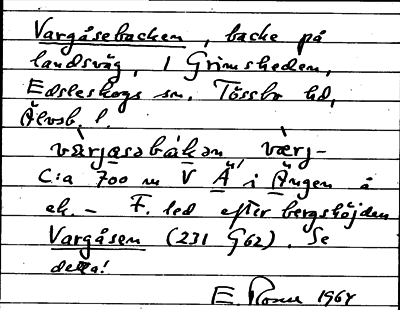 Vargåsebacken, backe på
landsväg, i Grimsheden,
Edsleskogs sn. Tössbo hd,
Älvsb. l.
värjasəbàkən värj-
C:a 700 m V Ä i Ängen å
ek. – F. led efter bergshöjden
Vargåsen (231 G62). Se
detta!
E. Rosin 1967